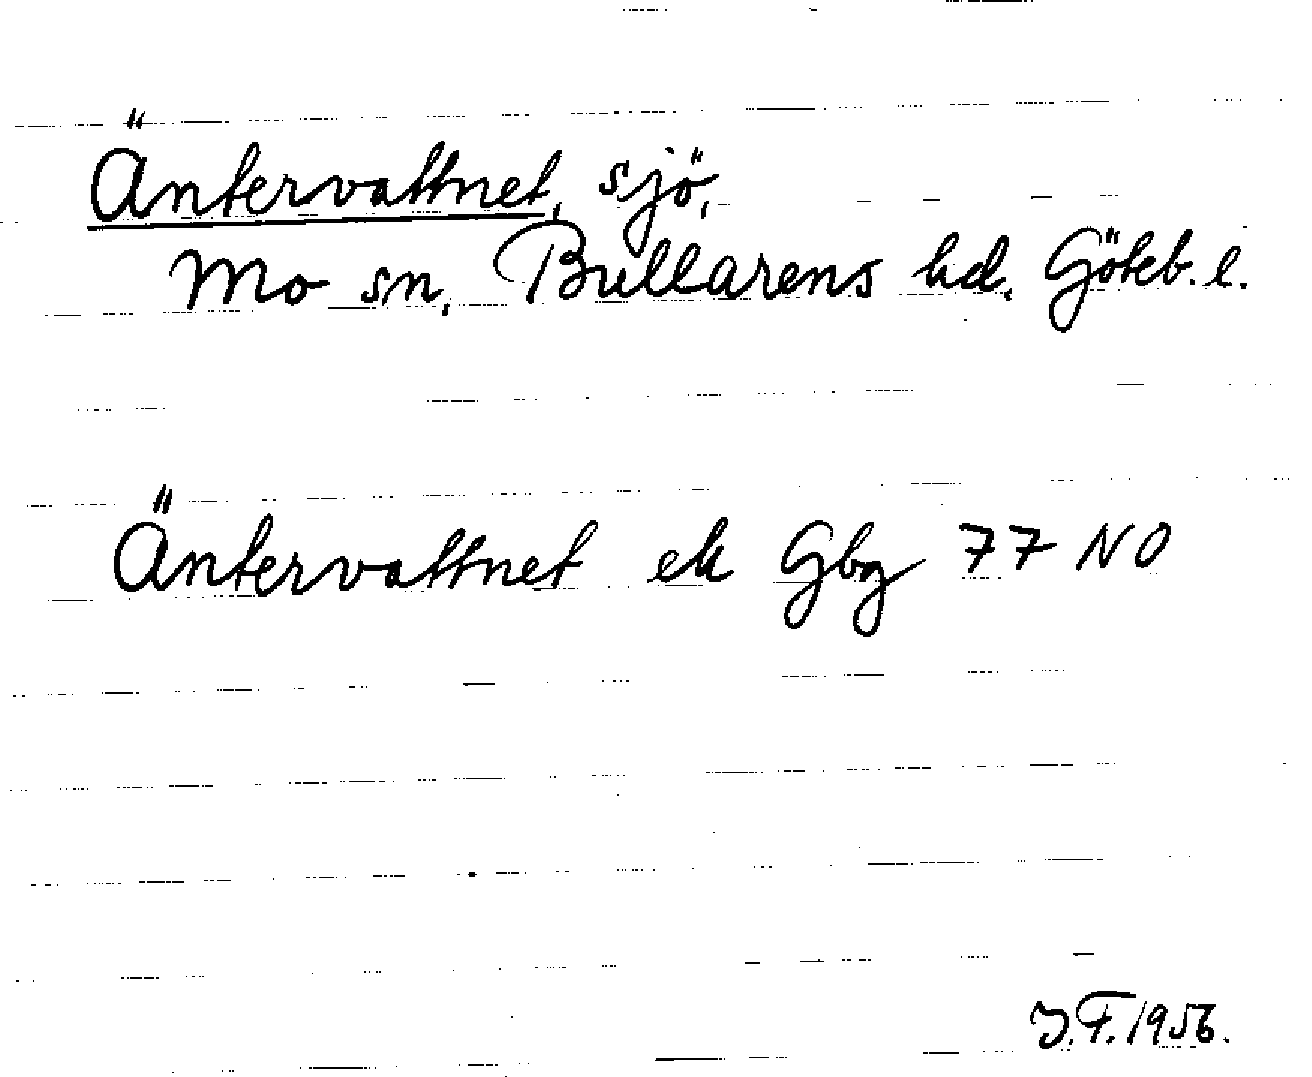 Äntervattnet, sjö,
Mo sn, Bullarens hd. Göteb. l.
Äntervattnet ek Gbg 77 NO
J.F. 1956.